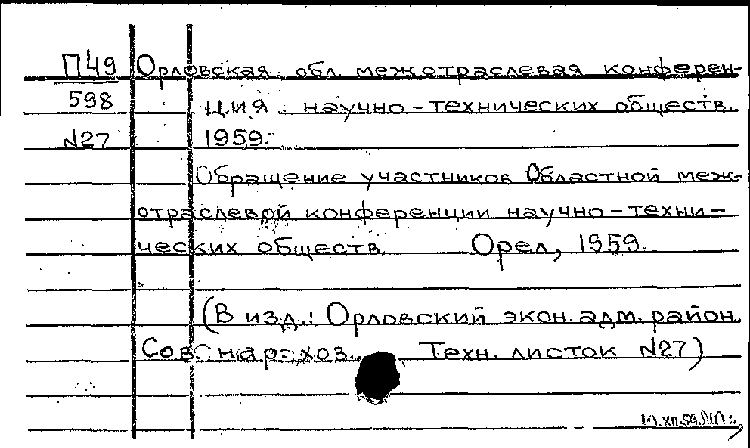 П49 Орловская обл. межотраслевая конферен-
598 ция научно-технических обществ.
N27 1959.
Обращение участников Областной меж-
отраслевой конференции научно-техни-
ческих обществ. Орел, 1959.
(В изд.: Орловский экон. адм. район.
Совнархоз. Техн. листок N27)